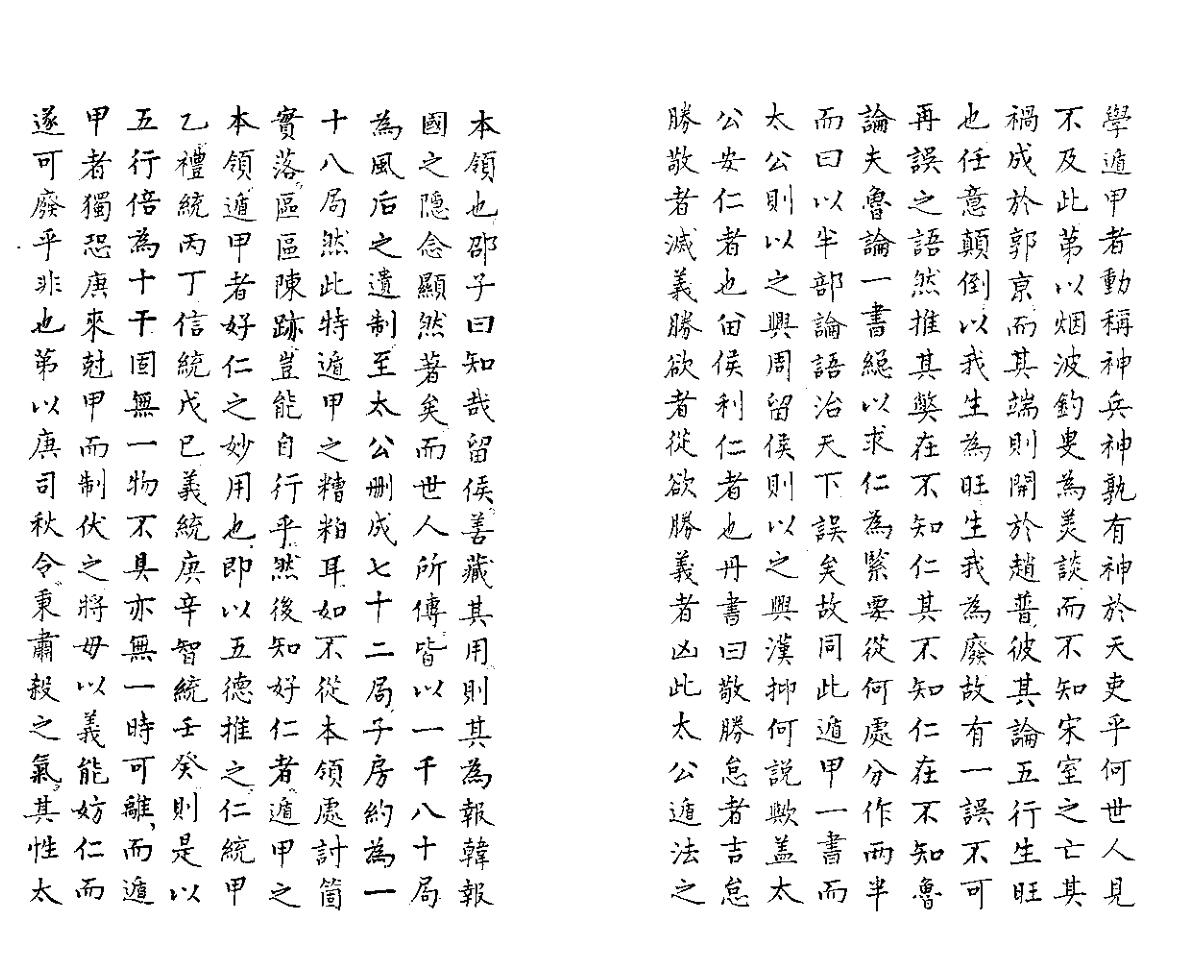 學遁甲者動稱神兵神孰有神於天吏乎何世人見
不及此第以烟波釣叟為美談而不知宋室之亡其
禍成於郭京而其端則開於趙普彼其論五行生旺
也任意顛倒以我生為旺生我為廢故有一誤不可
再誤之語然推其獘在不知仁其不知仁在不知魯
論夫魯論一書絕以求仁為緊要從何處分作兩半
而曰以半部論語治天下誤矣故同此遁甲一書而
太公則以之興周留侯則以之興漢抑何說歟盖太
公安仁者也留侯利仁者也丹書曰敬勝怠者吉怠
勝敬者滅義勝欲者從欲勝義者凶此太公遁法之
本領也邵子曰知哉留侯善藏其用則其為報韓報
國之隱念顯然著矣而世人所傳皆以一千八十局
為風后之遺制至太公刪成七十二局子房約為一
十八局然此特遁甲之糟粕耳如不從本領處討箇
實落區區陳跡豈能自行乎然後知好仁者遁甲之
本領遁甲者好仁之妙用也即以五德推之仁統甲
乙禮統丙丁信統戊己義統庚辛智統壬癸則是以
五行倍為十干固無一物不具亦無一時可離而遁
甲者獨恐庚來尅甲而制伏之將毋以義能妨仁而
遂可廢乎非也第以庚司秋令秉肅殺之氣其性太